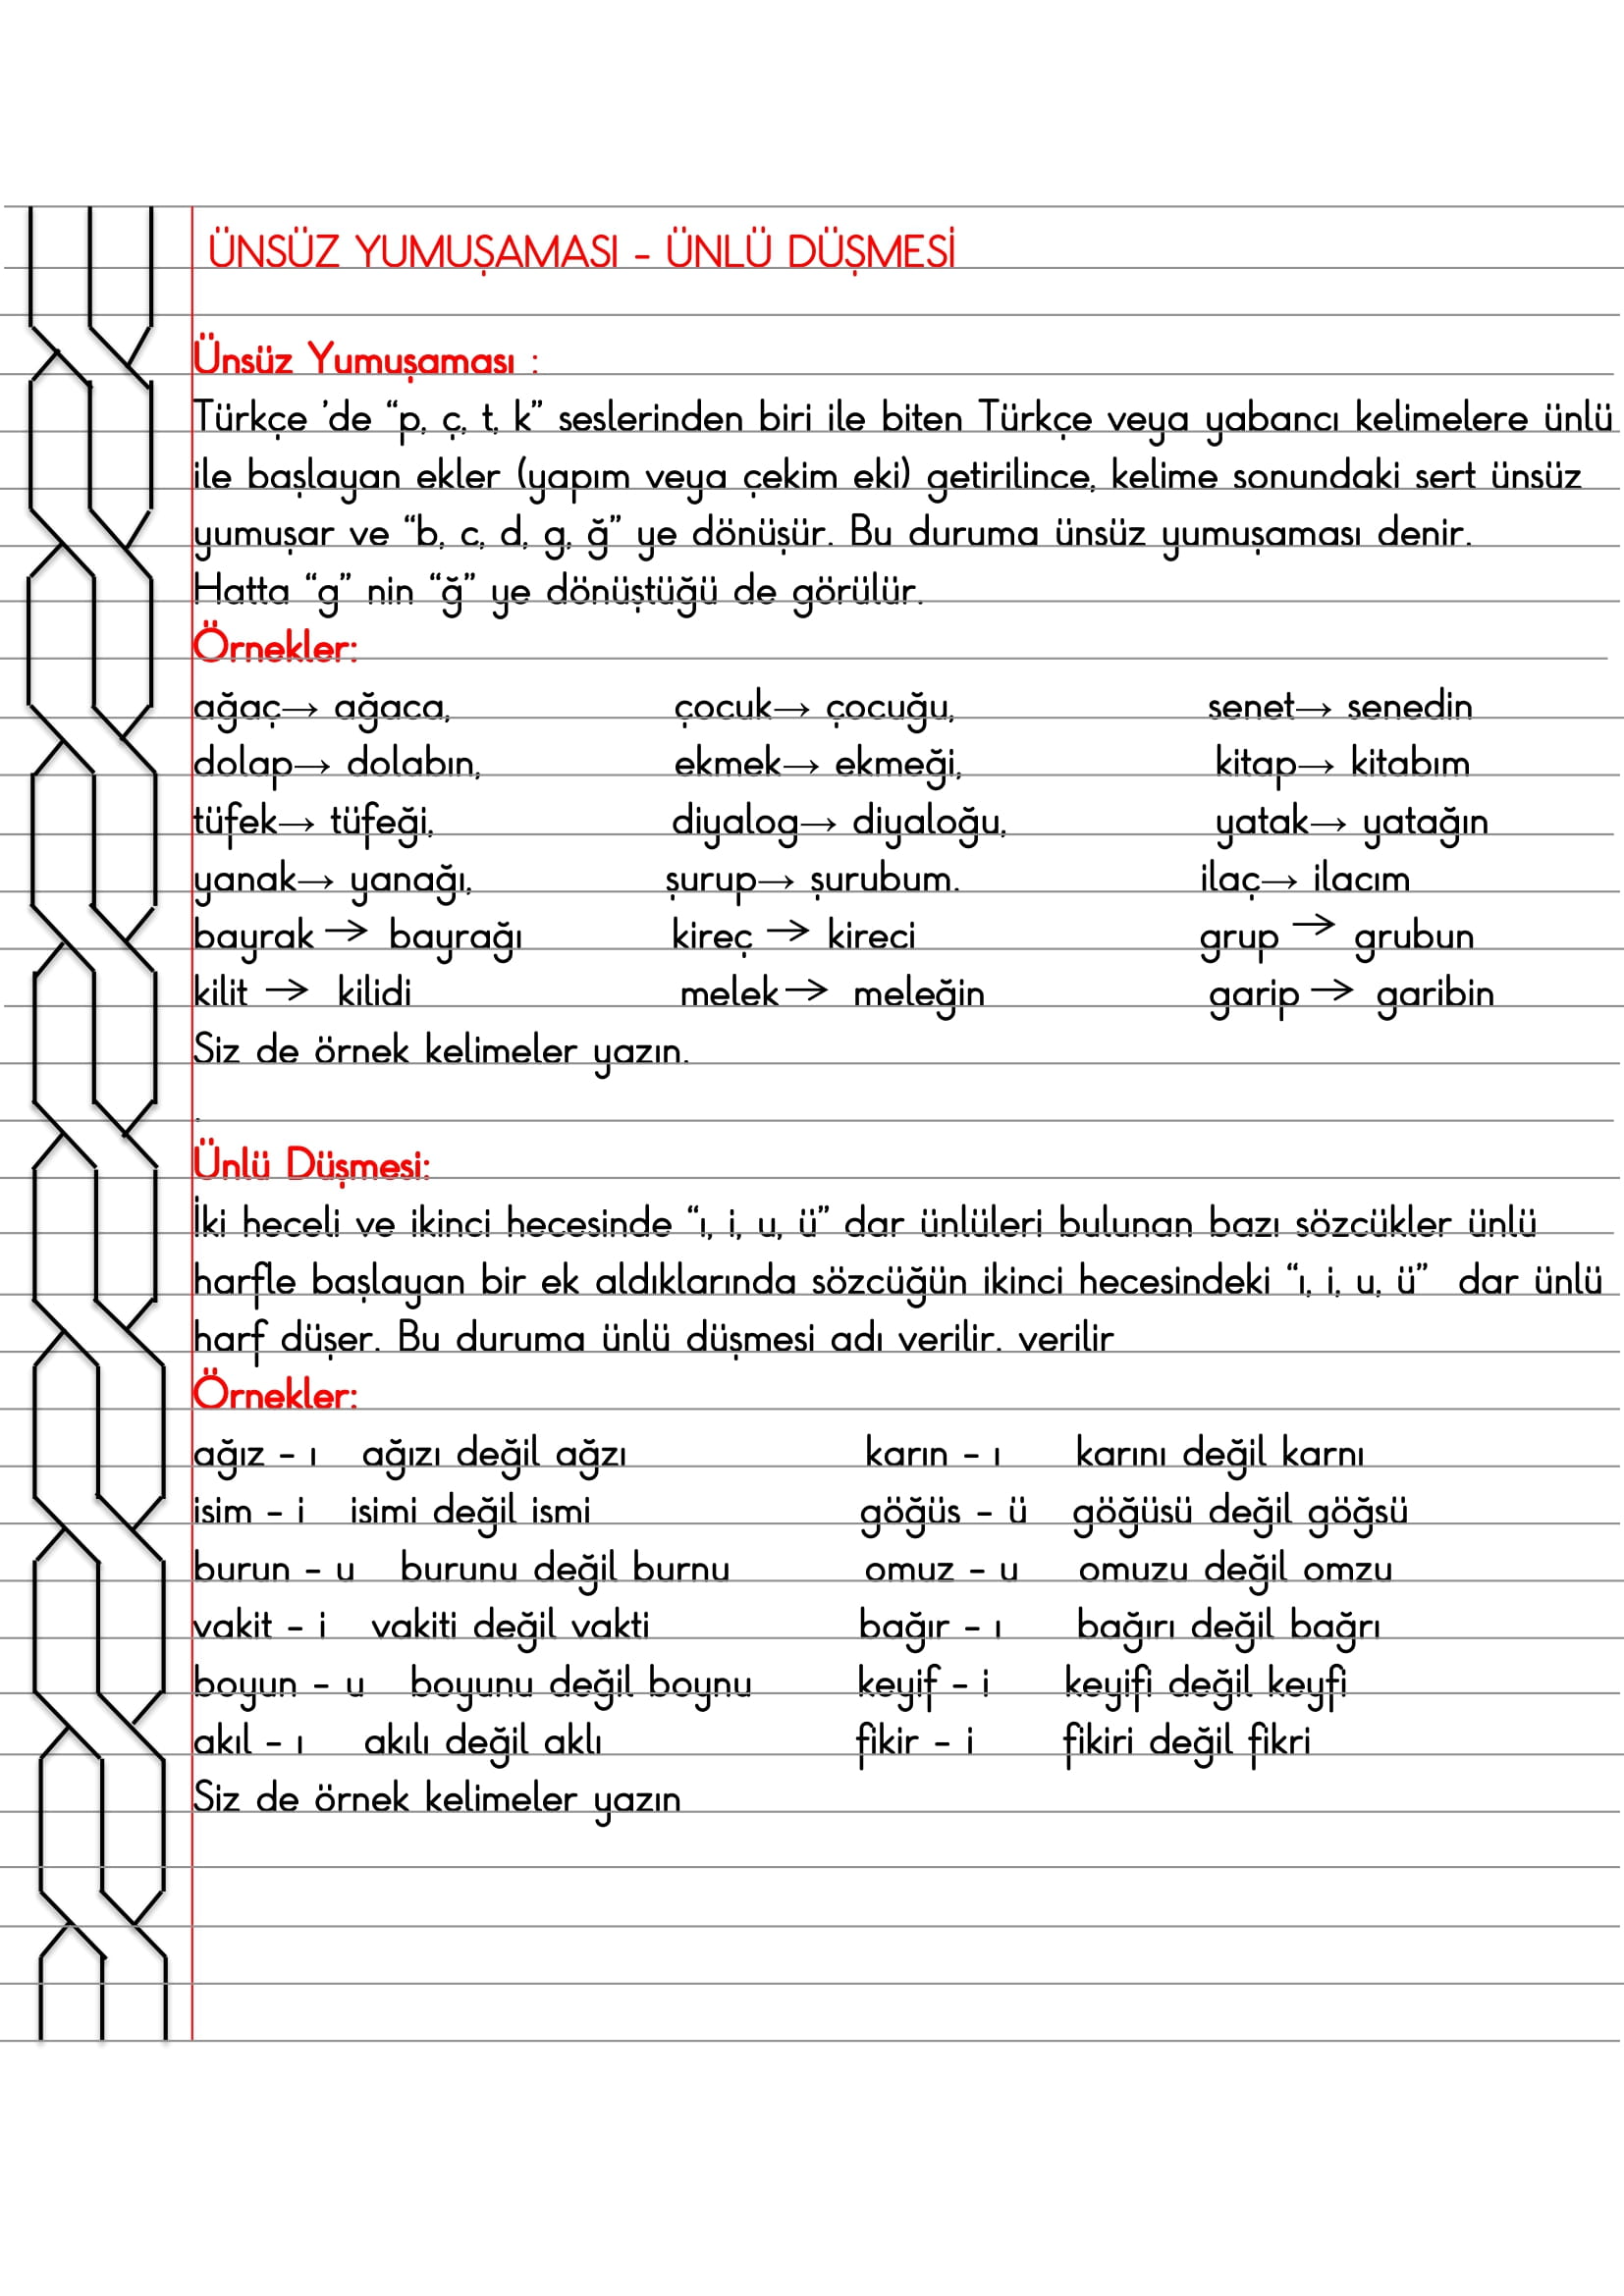 ÜNSÜZ YUMUŞAMASI - ÜNLÜ DÜŞMESİ
Ünsüz Yumuşaması :
Türkçe ’de “p, ç, t, k” seslerinden biri ile biten Türkçe veya yabancı kelimelere ünlü
ile başlayan ekler (yapım veya çekim eki) getirilince, kelime sonundaki sert ünsüz
yumuşar ve “b, c, d, g, ğ” ye dönüşür. Bu duruma ünsüz yumuşaması denir.
Hatta “g” nin “ğ” ye dönüştüğü de görülür.
Örnekler:
ağaç→ ağaca, çocuk→ çocuğu, senet→ senedin
dolap→ dolabın, ekmek→ ekmeği, kitap→ kitabım
tüfek→ tüfeği, diyalog→ diyaloğu, yatak→ yatağın
yanak→ yanağı, şurup→ şurubum. ilaç→ ilacım
bayrak → bayrağı kireç → kireci grup → grubun
kilit → kilidi melek→ meleğin garip → garibin
Siz de örnek kelimeler yazın.
.
Ünlü Düşmesi:
İki heceli ve ikinci hecesinde “ı, i, u, ü” dar ünlüleri bulunan bazı sözcükler ünlü
harfle başlayan bir ek aldıklarında sözcüğün ikinci hecesindeki “ı, i, u, ü” dar ünlü
harf düşer. Bu duruma ünlü düşmesi adı verilir. verilir
Örnekler:
ağız - ı ağızı değil ağzı karın - ı karını değil karnı
isim - i isimi değil ismi göğüs - ü göğüsü değil göğsü
burun - u burunu değil burnu omuz - u omuzu değil omzu
vakit - i vakiti değil vakti bağır - ı bağırı değil bağrı
boyun - u boyunu değil boynu keyif - i keyifi değil keyfi
akıl - ı akılı değil aklı fikir - i fikiri değil fikri
Siz de örnek kelimeler yazın